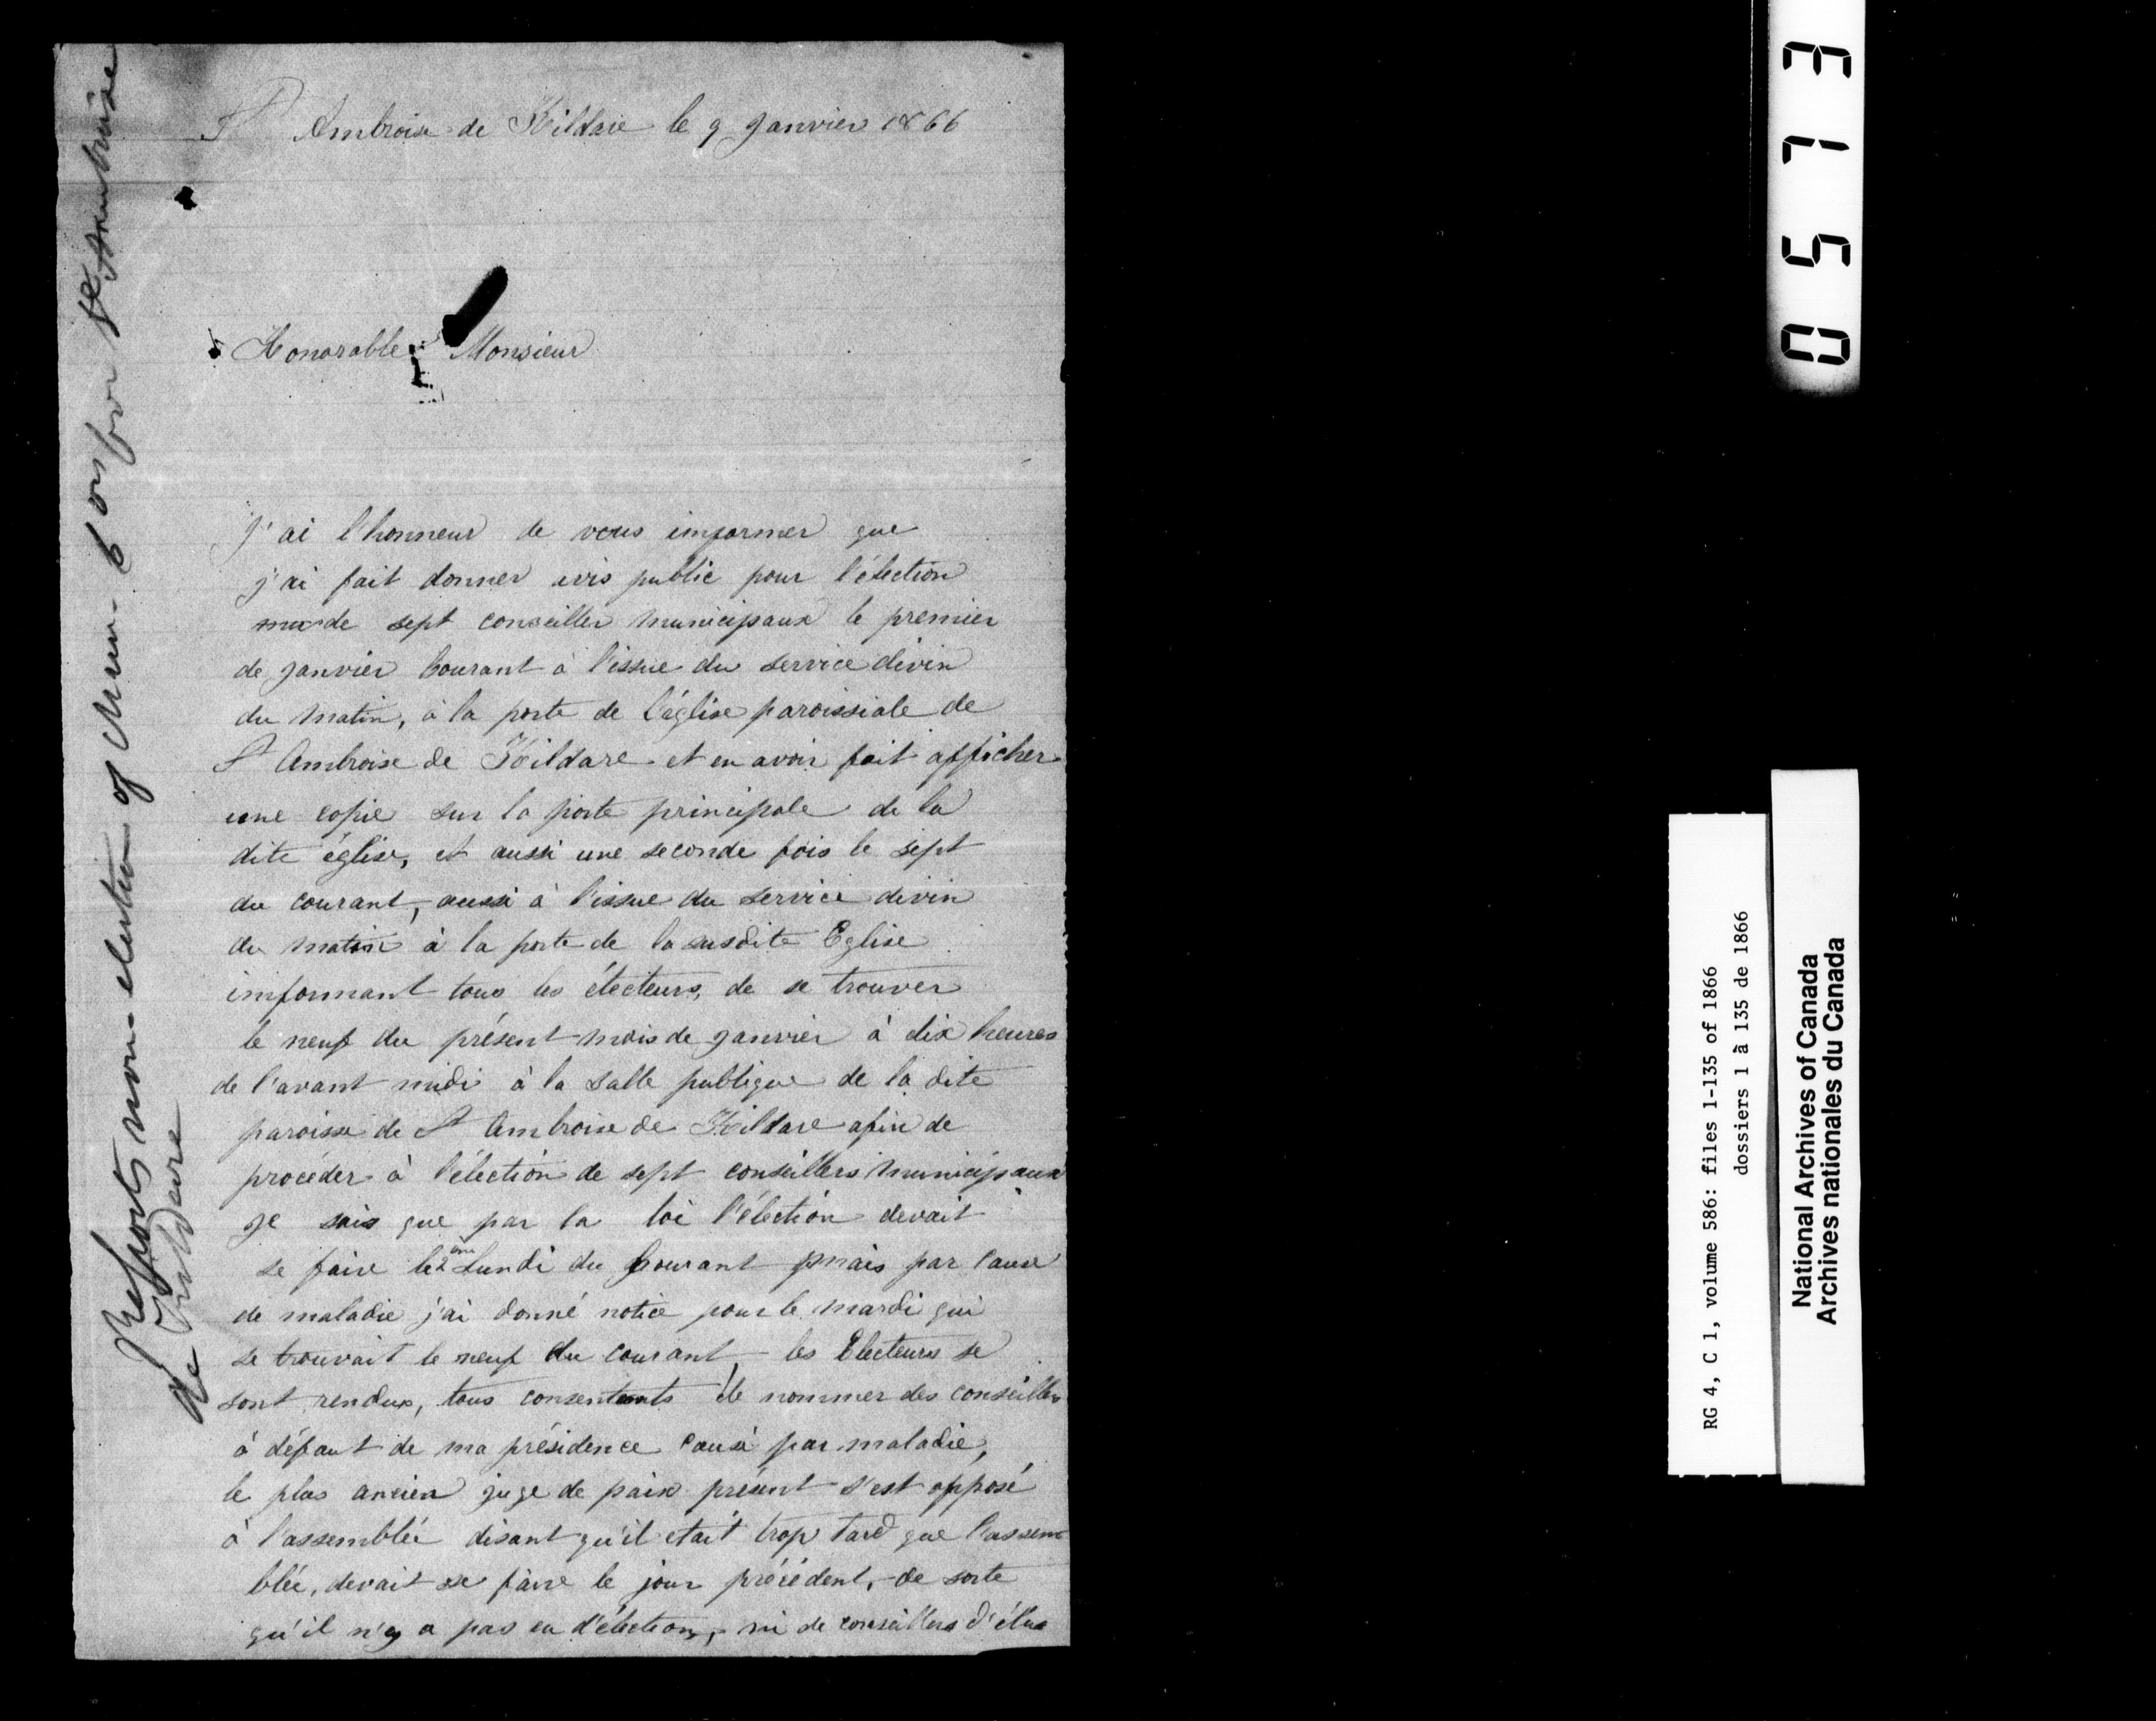 St Ambroise de Kildare le 9 Janvier 1866
Honorable Monsieur
J'ai l'honneur de vous imformer que
j'ai fait donner avis public pour l'élection
de sept conseiller municipaux le premier
de janvier Courant à l'issue du service divin
du matin, à la porte de l'église paroissiale de
St Ambroise de Kildare et en avoir fait afficher
une copie sur la porte principale de la
dite église, et aussi une seconde fois le sept
du courant, aussi à l'issue du service divin
du matin à la porte de la susdite Eglise
imformant tous les électeurs, de se trouver
le neuf du présent mois de janvier à dix heures
de l'avant midi à la salle publique de la dite
paroisse de St Ambroise de Kildare afin de
procéder à l'élection de sept conseillers municipaux
Je sais que par la loi l'élection devait
se faire le 2ème Lundi du Courant mais par cause
de maladie j'ai donné notice pour le mardi qui
se trouvait le neuf du courant, les Electeurs se
sont rendus, tous consentants de nommer des conseillers
à défaut de ma présidence causé par maladie,
le plus ancien juge de paix présent s'est opposé
à l'assemblée disant qu'il etait trop tard que l'assem
blée, devait se faire le jour précédent, de sorte
qu'il n'y a pas eu d'élection, ni de conseillers d'élus
Reports non-election of Mun. Cors for St Ambroise
de Kildare
0573
RG 4, C 1, volume 586: files 1-135 of 1866
dossiers 1 à 135 de 1866
National Archives of Canada
Archives nationales du Canada